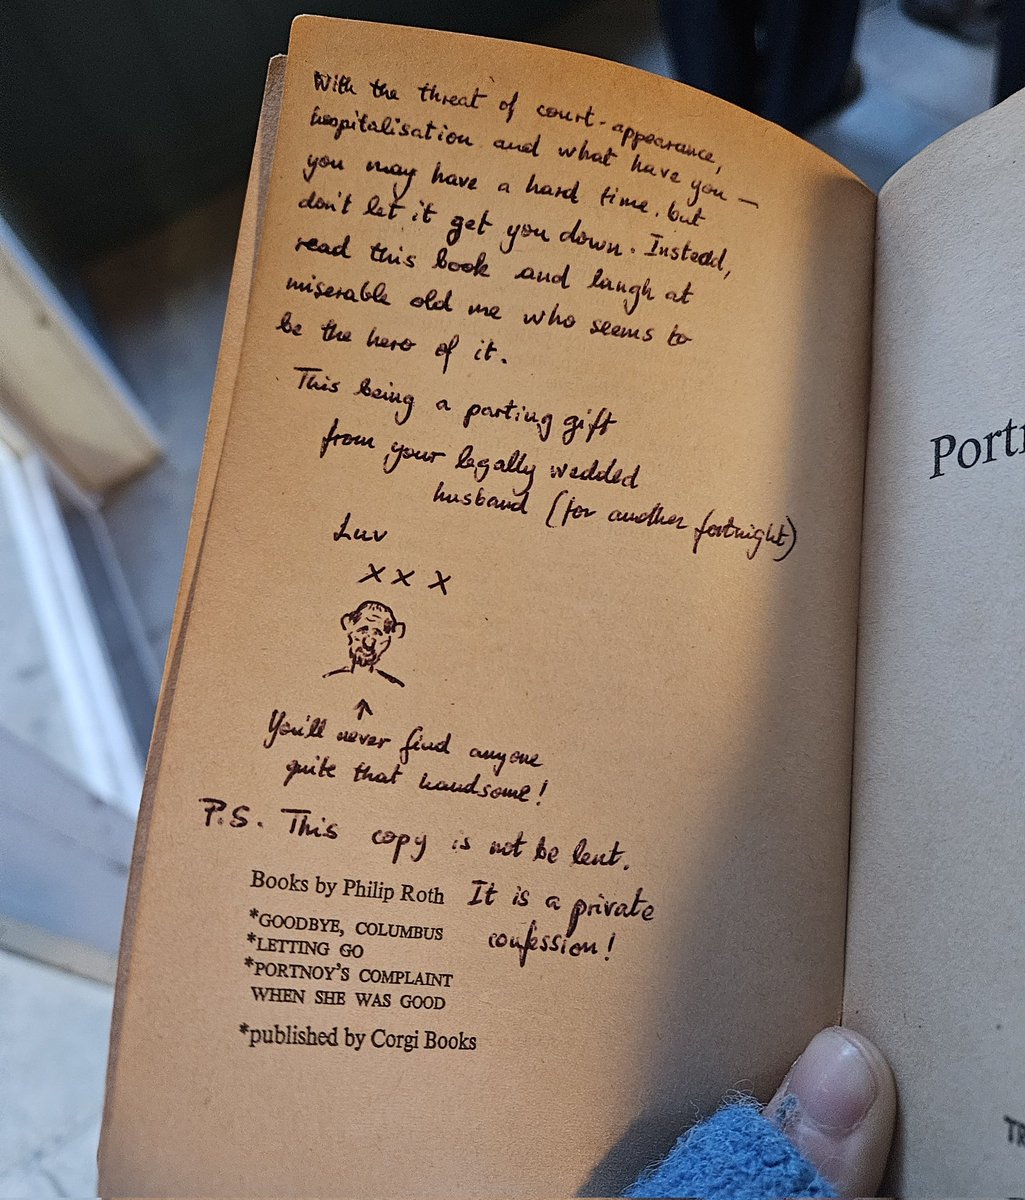 With the threat of court-appearance,
hospitalisation and what have you —
you may have a hard time, but
don't let it get you down. Instead,
read this book and laugh at
miserable old me who seems to
be the hero of it.
This being a parting gift
from your legally wedded
husband (for another fortnight)
Luv
x x x
↑
You'll never find anyone
quite that handsome!
P.S. This copy is not be lent.
It is a private
confession!
Books by Philip Roth
*GOODBYE, COLUMBUS
*LETTING GO
*PORTNOY'S COMPLAINT
WHEN SHE WAS GOOD
*published by Corgi Books
Portn
TR